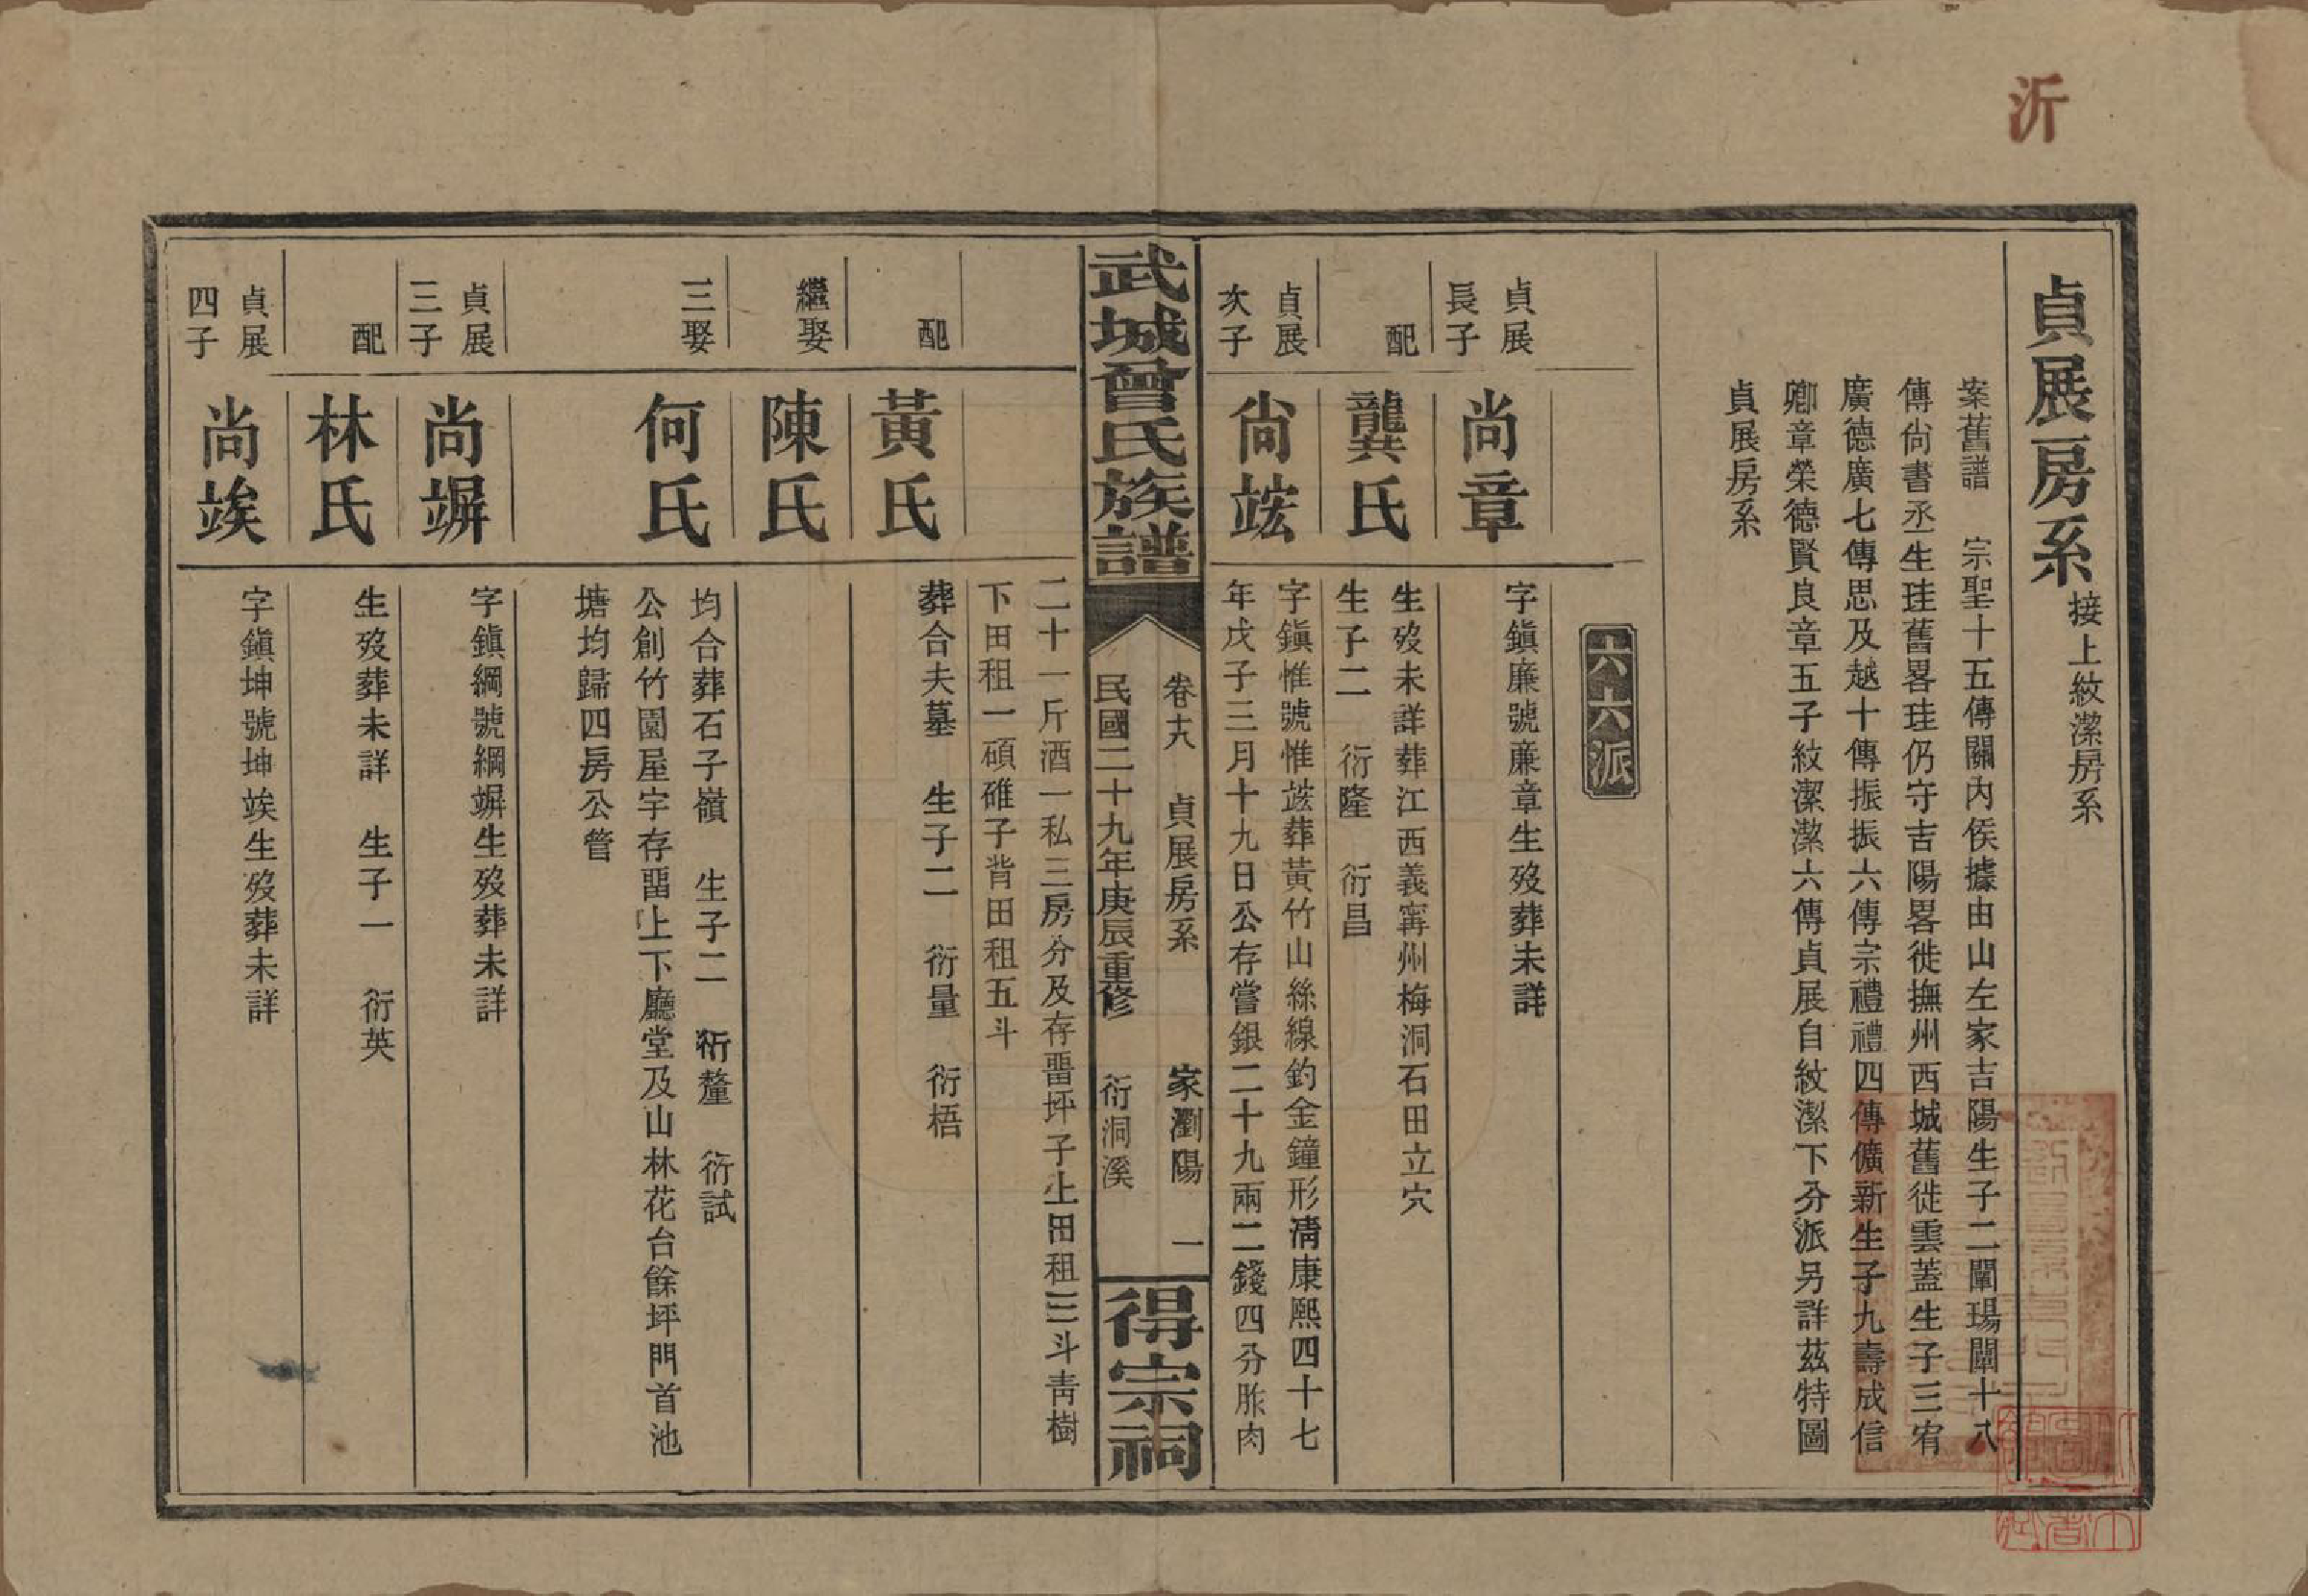 沂
貞展房系 接上紋潔房系
案舊譜 宗聖十五傳關內侯據由山左家吉陽生子二闡瑒闡十八
傳尙書丞生珪舊畧珪仍守吉陽畧徙撫州西城舊徙雲蓋生子三宥
廣德廣七傳思及越十傳振振六傳宗禮禮四傳儣新生子九壽成信
卿章榮德賢良章五子紋潔潔六傳貞展自紋潔下分派另詳茲特圖
貞展房系
六六派
貞展
長子
尚章
字鎭廉號亷章生歿葬未詳
配
龔氏
生歿未詳葬江西義寗州梅洞石田立穴
生子二 衍隆 衍昌
貞展
次子
尙竑
字鎭惟號惟竑葬黃竹山絲線釣金鐘形淸康熙四十七
年戊子三月十九日公存嘗銀二十九兩二錢四分胙肉
武城曾氏族譜
卷十八 貞展房系 家瀏陽 一
民國二十九年庚辰重修 衍洞溪
得宗祠
二十一斤酒一私三房分及存畱坪子上田租三斗靑樹
下田租一碩碓子背田租五斗
配
黃氏
葬合夫墓 生子二 衍量 衍梧
繼娶
陳氏
三娶
何氏
均合葬石子嶺 生子二 衍釐 衍試
公創竹園屋宇存畱上下廳堂及山林花台餘坪門首池
塘均歸四房公管
貞展
三子
尚竮
字鎭綱號綱竮生歿葬未詳
配
林氏
生歿葬未詳 生子一 衍英
貞展
四子
尚竢
字鎭坤號坤竢生歿葬未詳